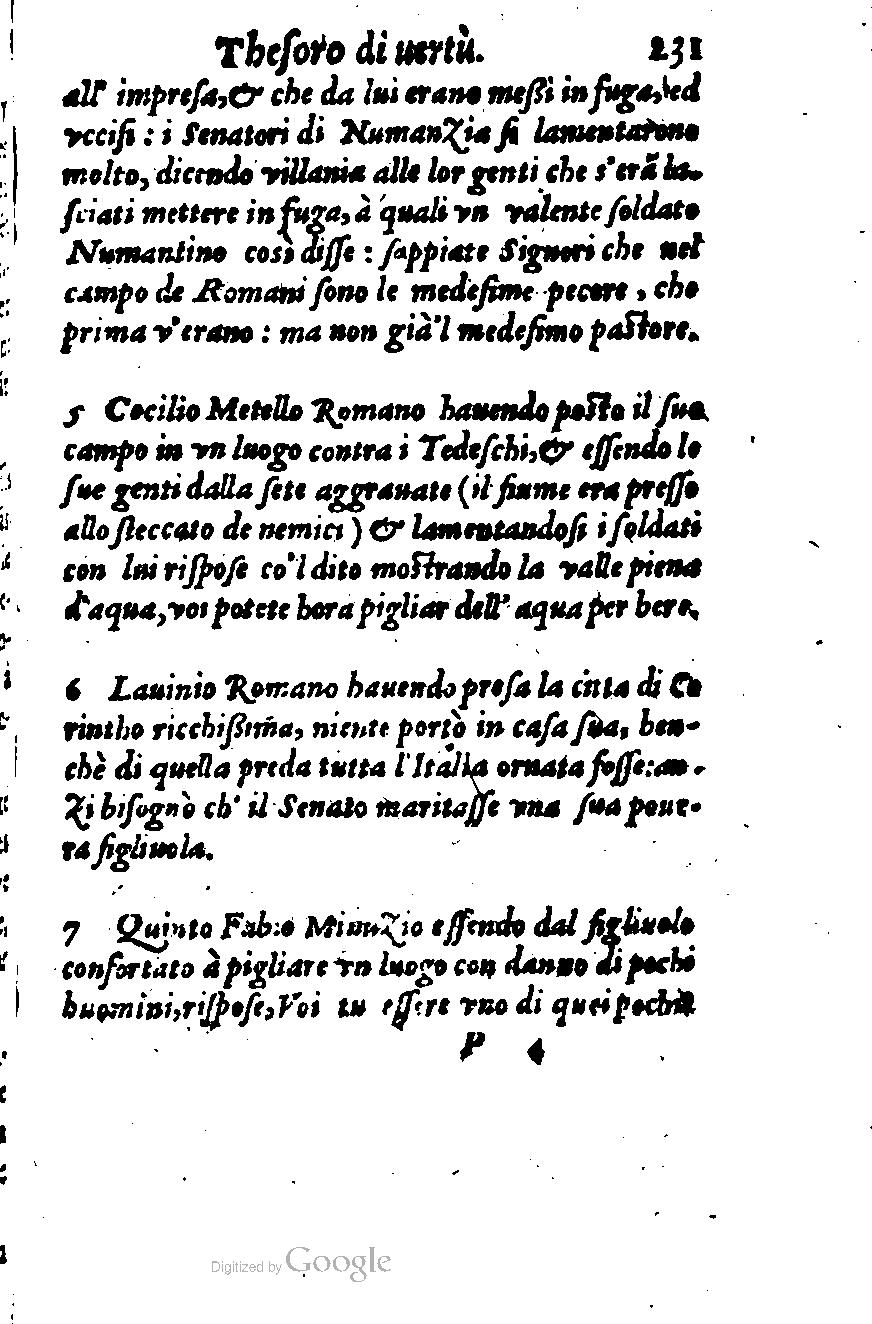 Theſoro di uertù. 231
all' impreſa, & che da lui erano meßi in fuga, ed
vcciſi : i Senatori di Numanzia ſi lamentarono
molto, dicendo villania alle lor genti che s'erā la-
ſciati mettere in fuga, à quali vn valente ſoldato
Numantino così diſſe : ſappiate Signori che nel
campo de Romani ſono le medeſime pecore, che
prima v'erano : ma non già'l medeſimo paſtore.
5 Cecilio Metello Romano hauendo poſto il ſuo
campo in vn luogo contra i Tedeſchi, & eſſendo le
ſue genti dalla ſete aggrauate (il fiume era preſſo
allo ſteccato de nemici) & lamentandoſi i ſoldati
con lui riſpoſe co'l dito moſtrando la valle piena
d'aqua, voi potete hora pigliar dell' aqua per bere.
6 Lauinio Romano hauendo preſa la citta di Co
rintho ricchißim̃a, niente portò in caſa ſua, ben-
chè di quella preda tutta l'Italia ornata foſſe: an-
zi biſognò ch' il Senato maritaſſe vna ſua poue-
ra figliuola.
7 Quinto Fabio Minuzio eſſendo dal figliuolo
confortato à pigliare vn luogo con danno di pochi
huomini, riſpoſe, Voi tu eſſere vno di quei pochi?
P 4
Digitized by Google